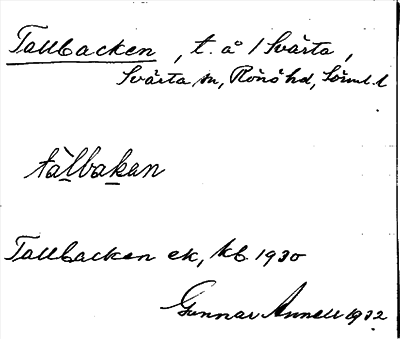 Tallbacken, t. å 1 Svärta,
Svärta sn, Rönö hd, Söml. l
tàlbakan
Tallbacken ek, kb. 1930
Gunnar Annell 1932